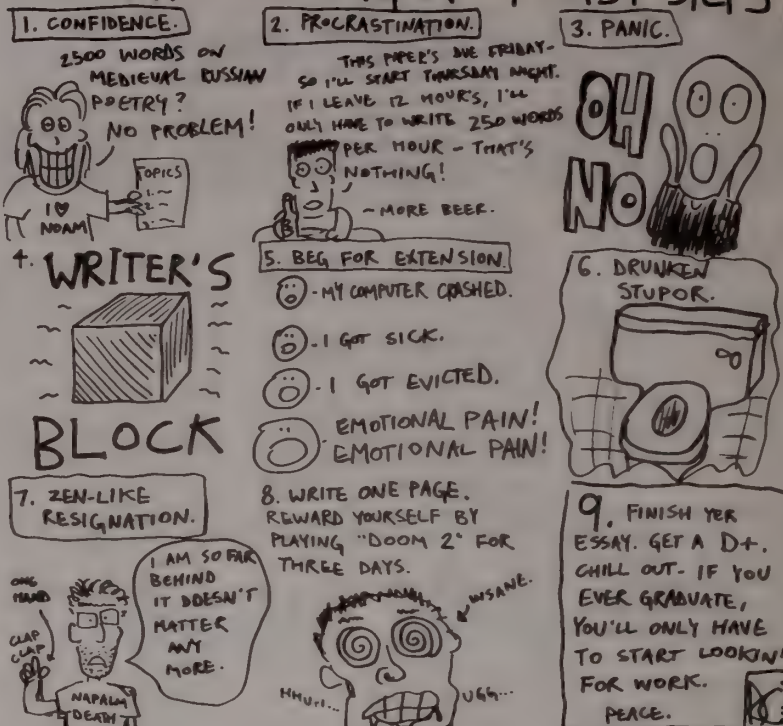 STEPS
1. CONFIDENCE.
2500 WORDS ON
MEDIEVAL RUSSIAN
POETRY?
NO PROBLEM!
TOPICS
1.
2
3.
I ♥
NOAM
2. PROCRASTINATION.
THIS PAPER'S DUE FRIDAY-
SO I'LL START THURSDAY NIGHT.
IF I LEAVE 12 HOUR'S, I'LL
ONLY HAVE TO WRITE 250 WORDS
PER HOUR - THAT'S
NOTHING!
~ MORE BEER.
3. PANIC.
OH
NO
4. WRITER'S
BLOCK
5. BEG FOR EXTENSION.
- MY COMPUTER CRASHED.
- I GOT SICK.
- I GOT EVICTED.
EMOTIONAL PAIN!
EMOTIONAL PAIN!
6. DRUNKEN
STUPOR.
7. ZEN-LIKE
RESIGNATION.
ONE
HAND
CLAP
CLAP
I AM SO FAR
BEHIND
IT DOESN'T
MATTER
ANY
MORE.
NAPALM
DEATH
8. WRITE ONE PAGE.
REWARD YOURSELF BY
PLAYING "DOOM 2" FOR
THREE DAYS.
INSANE.
UGG...
9. FINISH YER
ESSAY. GET A D+.
CHILL OUT- IF YOU
EVER GRADUATE,
YOU'LL ONLY HAVE
TO START LOOKIN'
FOR WORK.
PEACE.